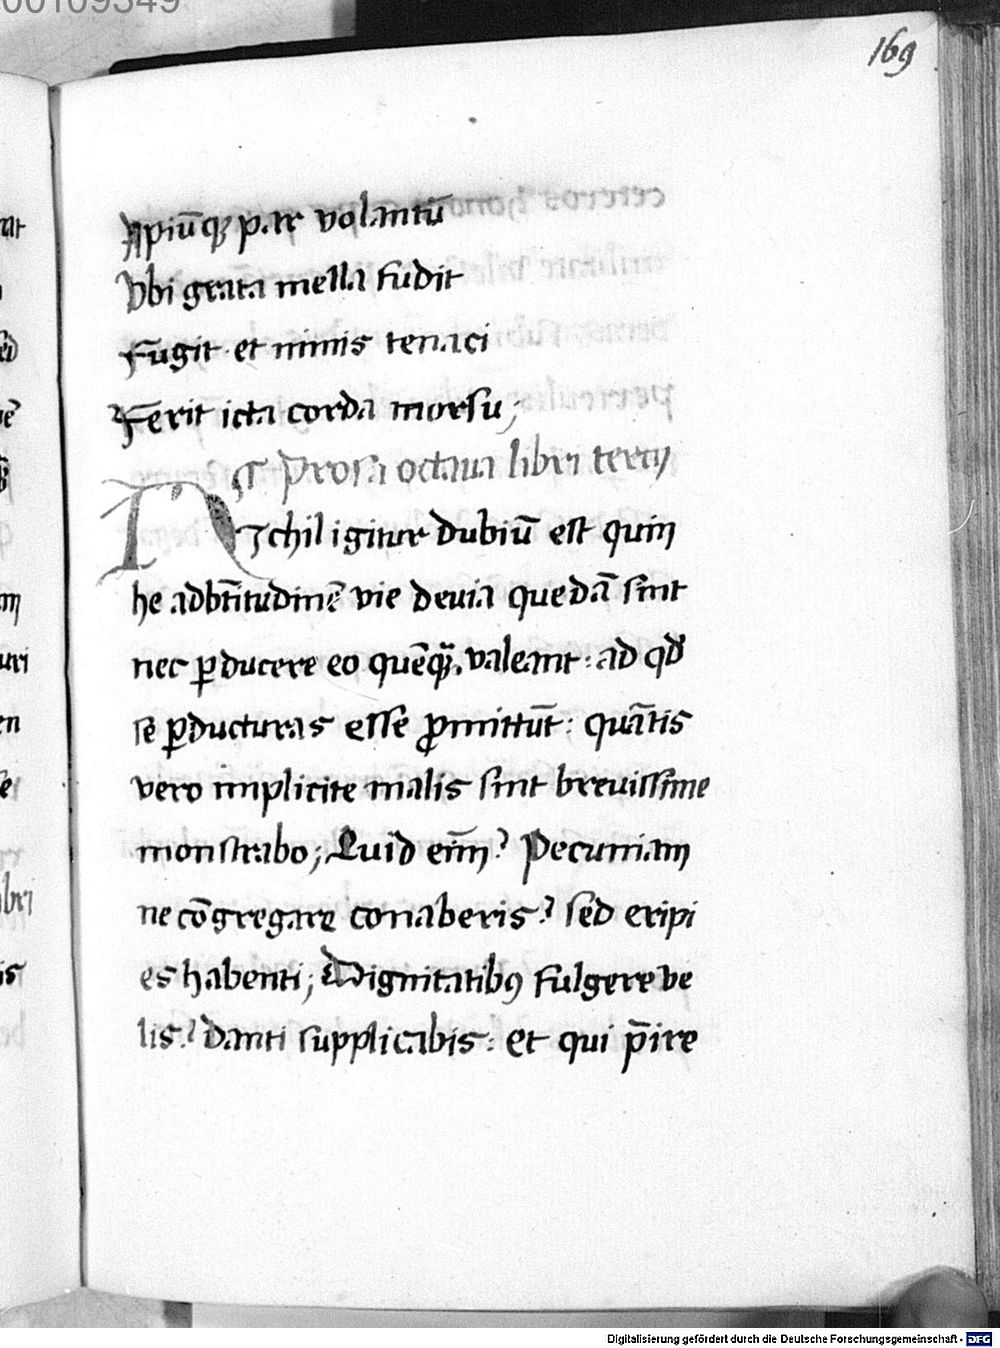 00109349
169
Apiūq; par volantū
Vbi grata mella fudit
Fugit et nimis tenaci
Ferit icta corda morsu;
Prosa octaua libri tercij
Nichil igitur dubiū est quin
he adbt̄itudinē vie deuia quedā sint
nec ꝑducere eo quēq̄. valeant: ad qd̄
se ꝑducturas esse ꝓmittūt: quātis
vero implicite malis sint breuissime
monstrabo; Quid eīm? Pecuniam
ne cōgregare conaberis? sed eripi
es habenti; Dignitatibꝯ fulgere ve
lis? danti supplicabis: et qui p̄ire
Digitalisierung gefördert durch die Deutsche Forschungsgemeinschaft - DFG